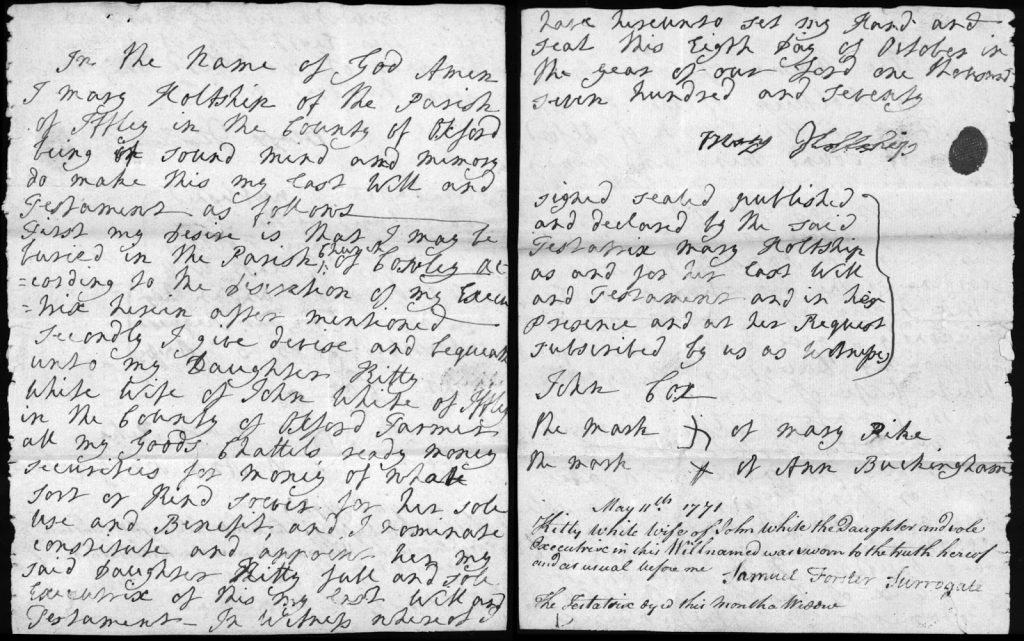 In the Name of God Amen
I mary Holtship of the Parish
of Iffley in the County of Oxford
being of sound mind and memory
do make this my Last Will and
Testament as follows
First my Desire is that I may be
buried in the Parish Church of Cowley Ac
=cording to the Discration of my Execu
=trix herein after mentioned
Secondly I give devise and bequeath
unto my Daughter Kitty
White Wife of John White of Iffley
in the County of Oxford Farmer
all my Goods Chattels ready money
securities for money of what
sort or Kind soever for her sole
use and Benefit, and I nominate
constitute and appoint her my
said Daughter Kitty full and sole
Executrix of this my Last Will and
Testament In Witness whereof I
have hereunto set my Hand and
seal this Eighth Day of October in
the year of our Lord one Thousand
seven hundred and seventy
mary Holtship
signed sealed published
and declared by the said
Testatrix mary Holtship
as and for her Last Will
and Testament and in her
Presence and at her Request
subscribed by us as Witnesses
John Cox
the mark of mary Pike
the mark of Ann Buckingham
May 11th 1771
Kitty White Wife of John White the Daughter and sole
Executrix in this Will named was sworn to the truth hereof
and as usual before me Samuel Forster Surrogate
The Testatrix dyed this Month a Widow